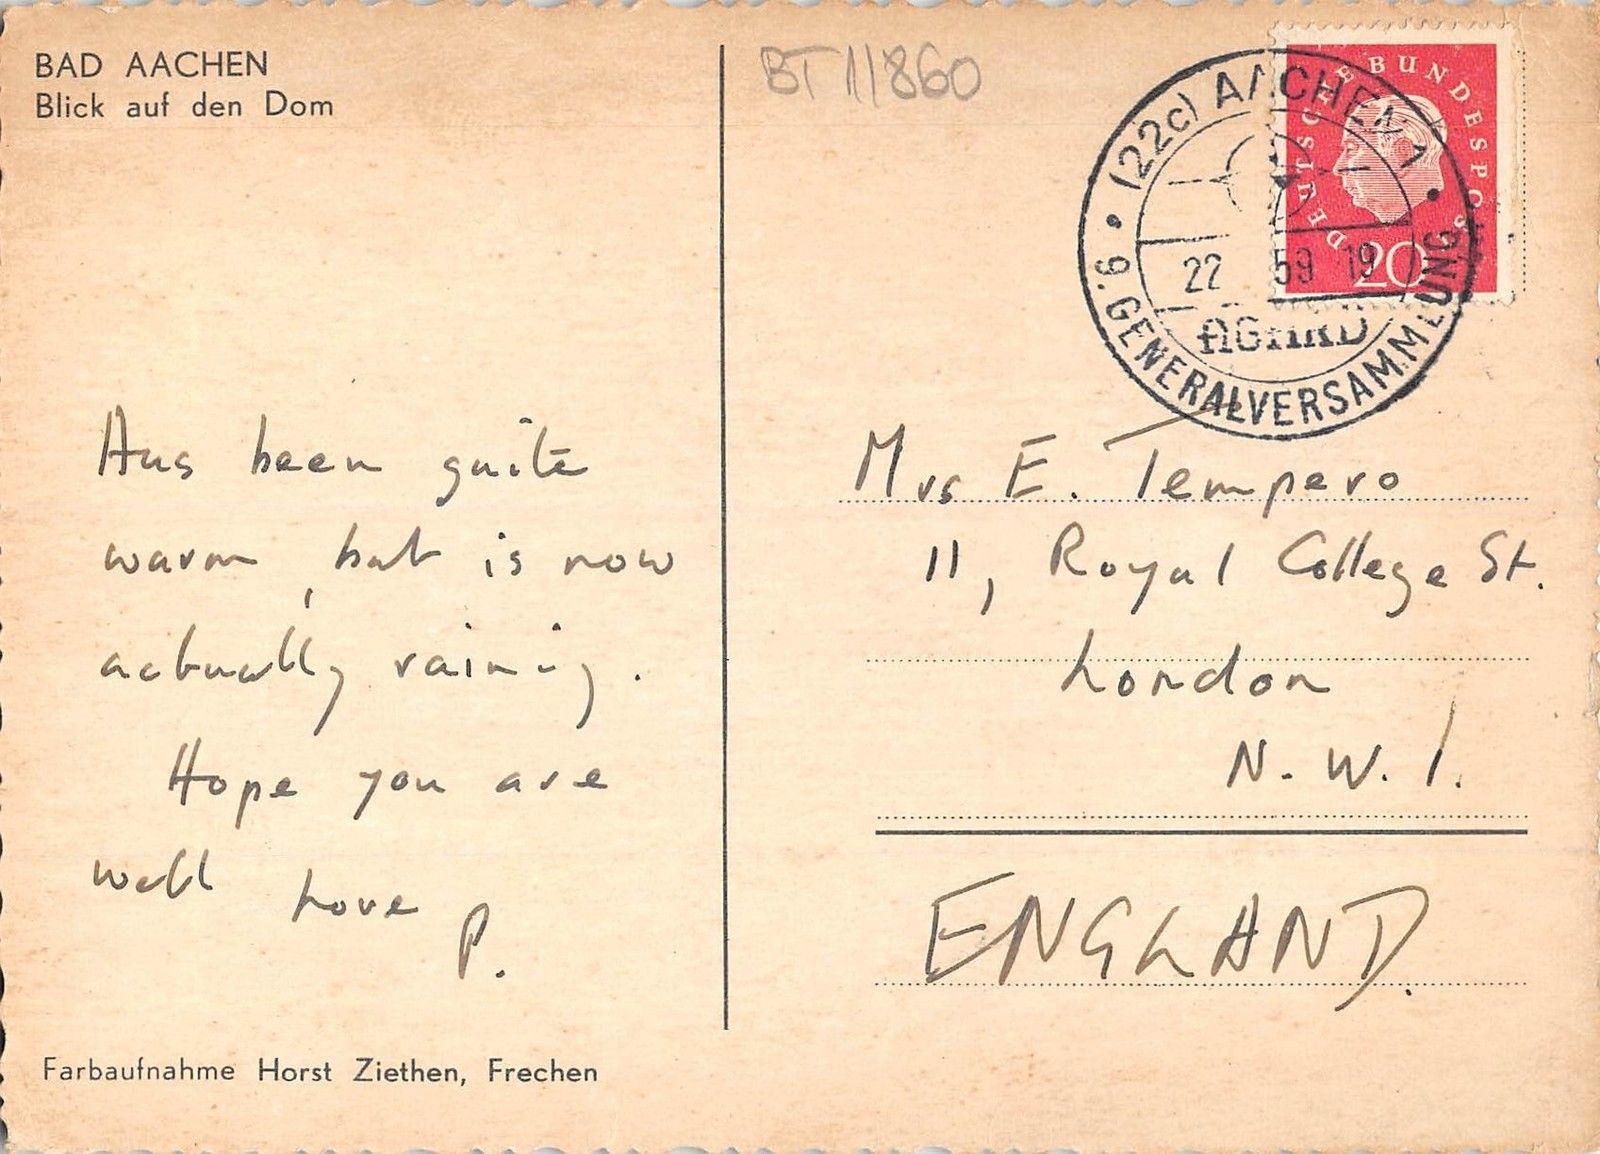 BAD AACHEN
Blick auf den Dom
BT 11860
(22c) AACHEN 1
DEUTSCHE BUNDESPOST
20
22 59 19
9. GENERALVERSAMMLUNG
Has been quite
warm, but is now
actually raining.
Hope you are
well Love
P.
Mrs E. Tempero
11, Royal College St.
London
N. W. 1.
ENGLAND.
Farbaufnahme Horst Ziethen, Frechen